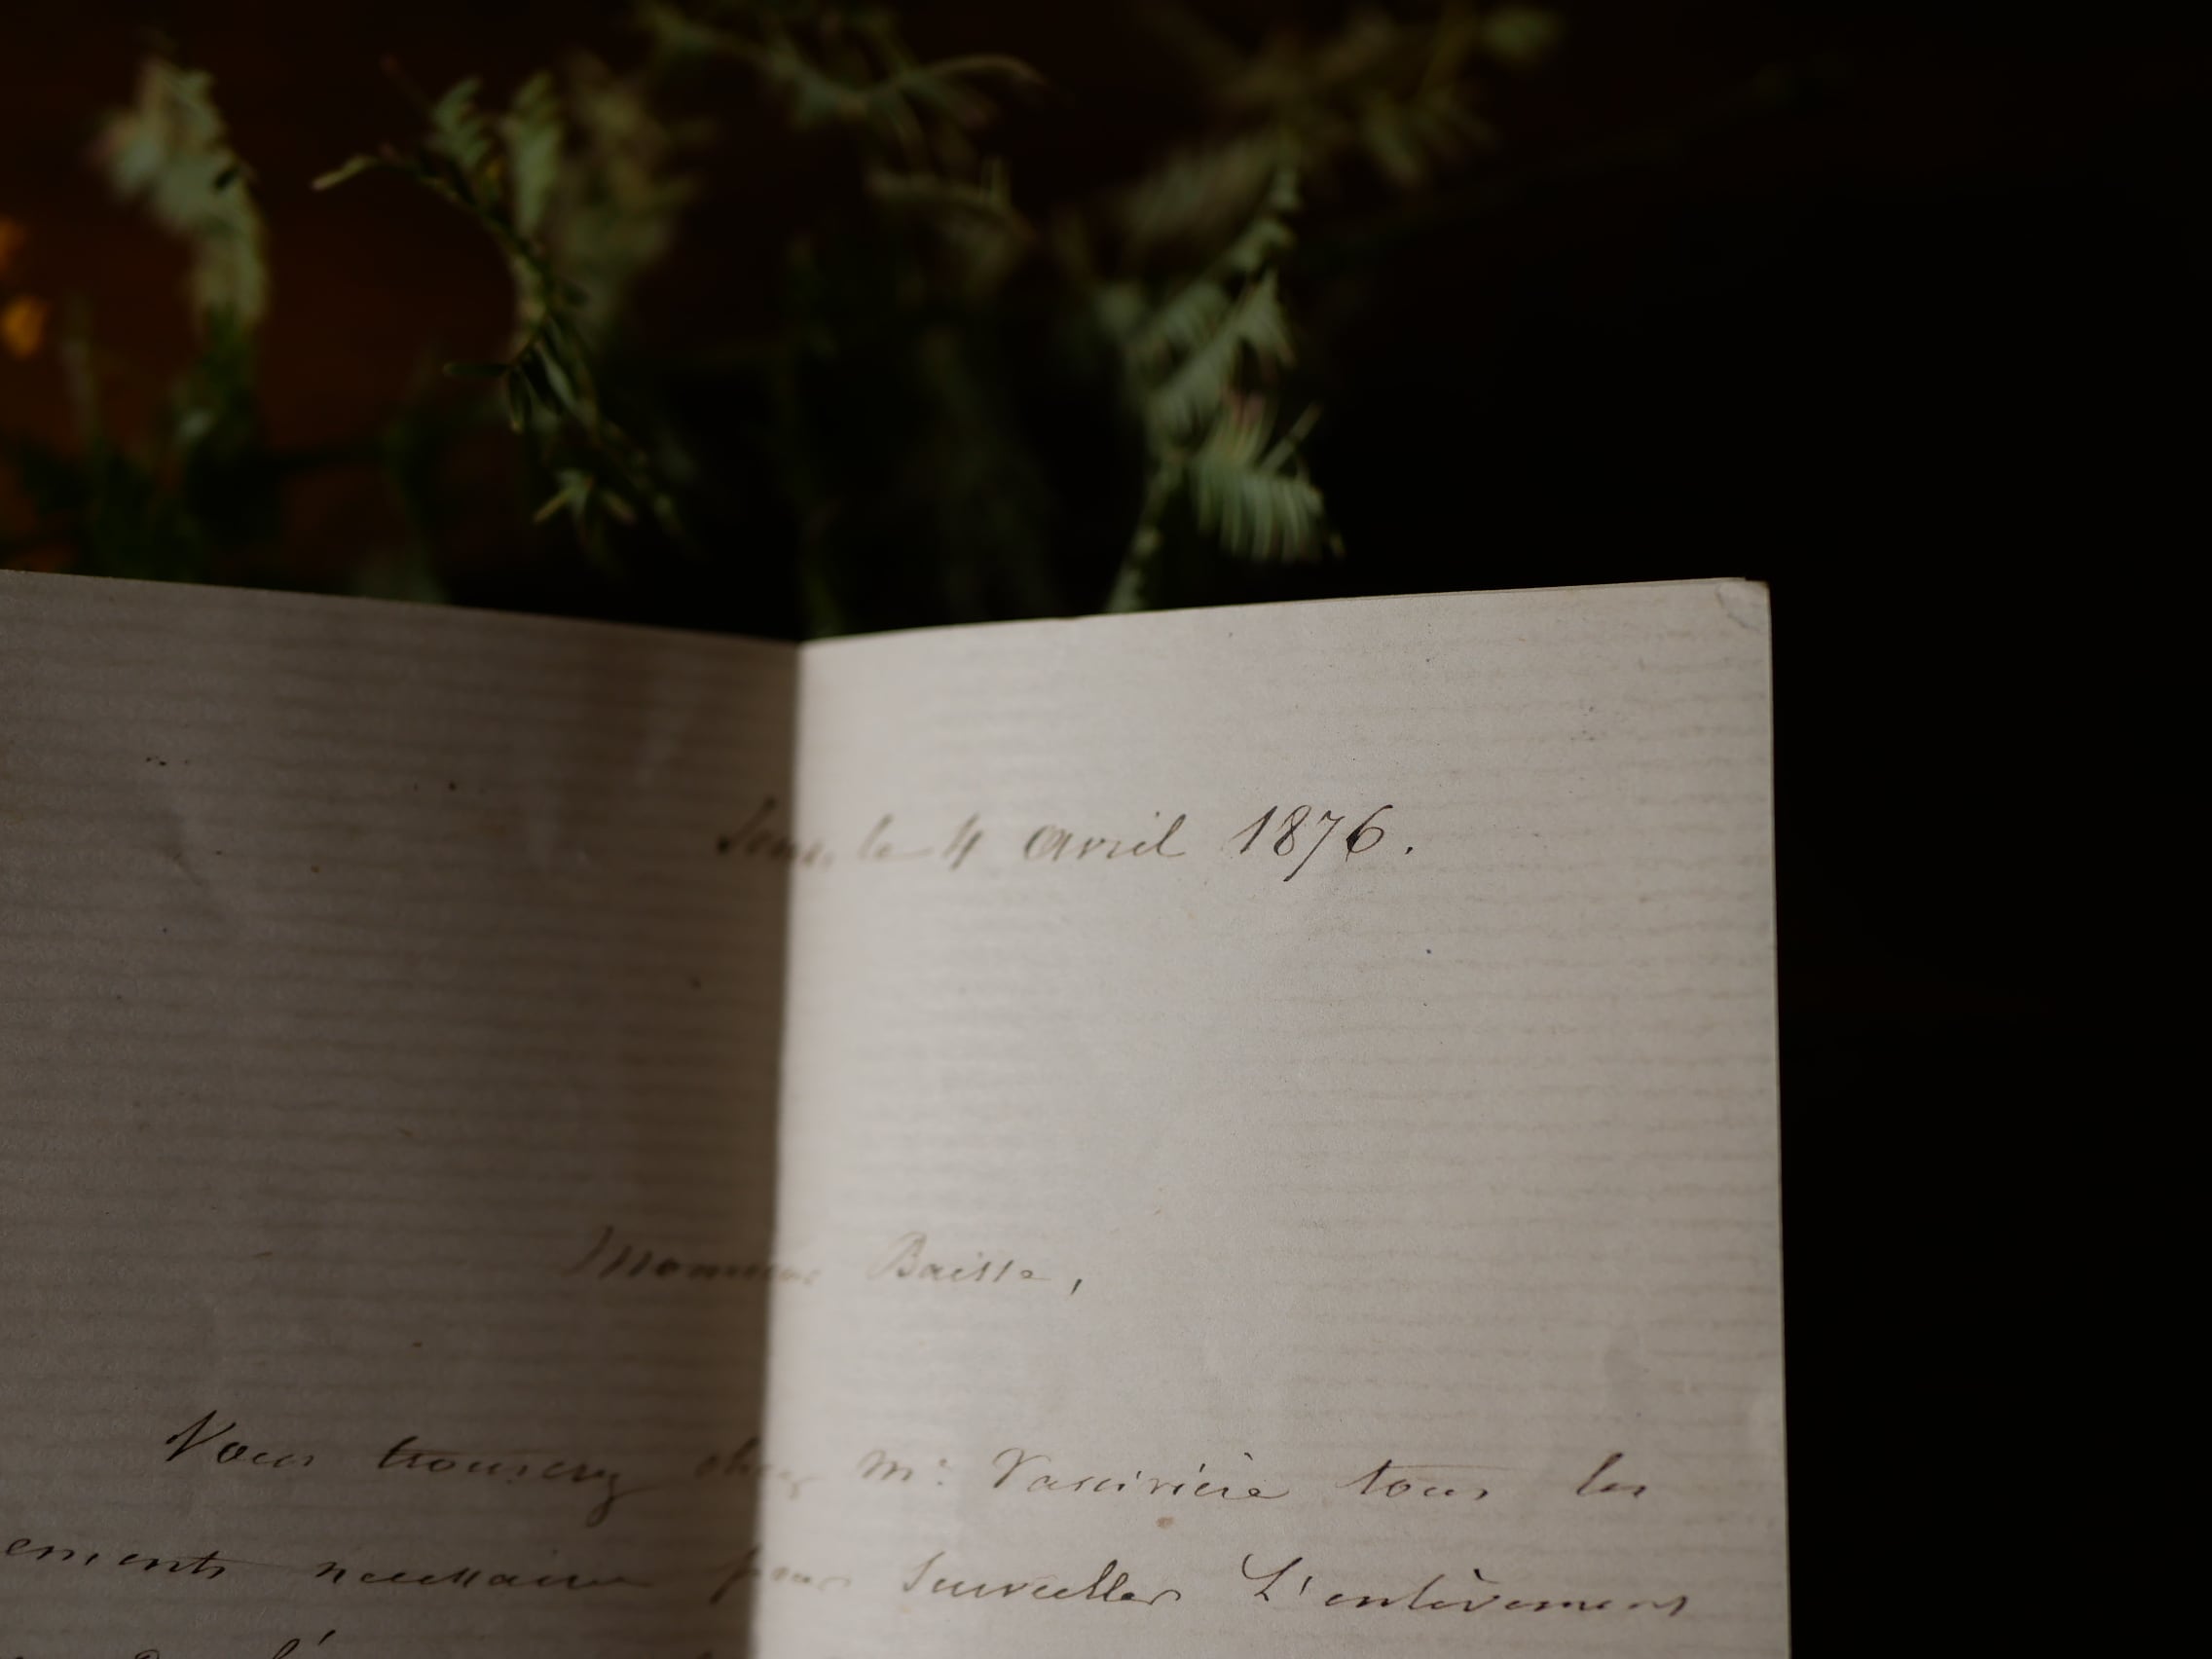 le 4 avril 1876.
Monsieur Baisse,
Vous trouverez chez Mr. Vassivière tous les
ements necessaires pour surveiller L'enlèvement